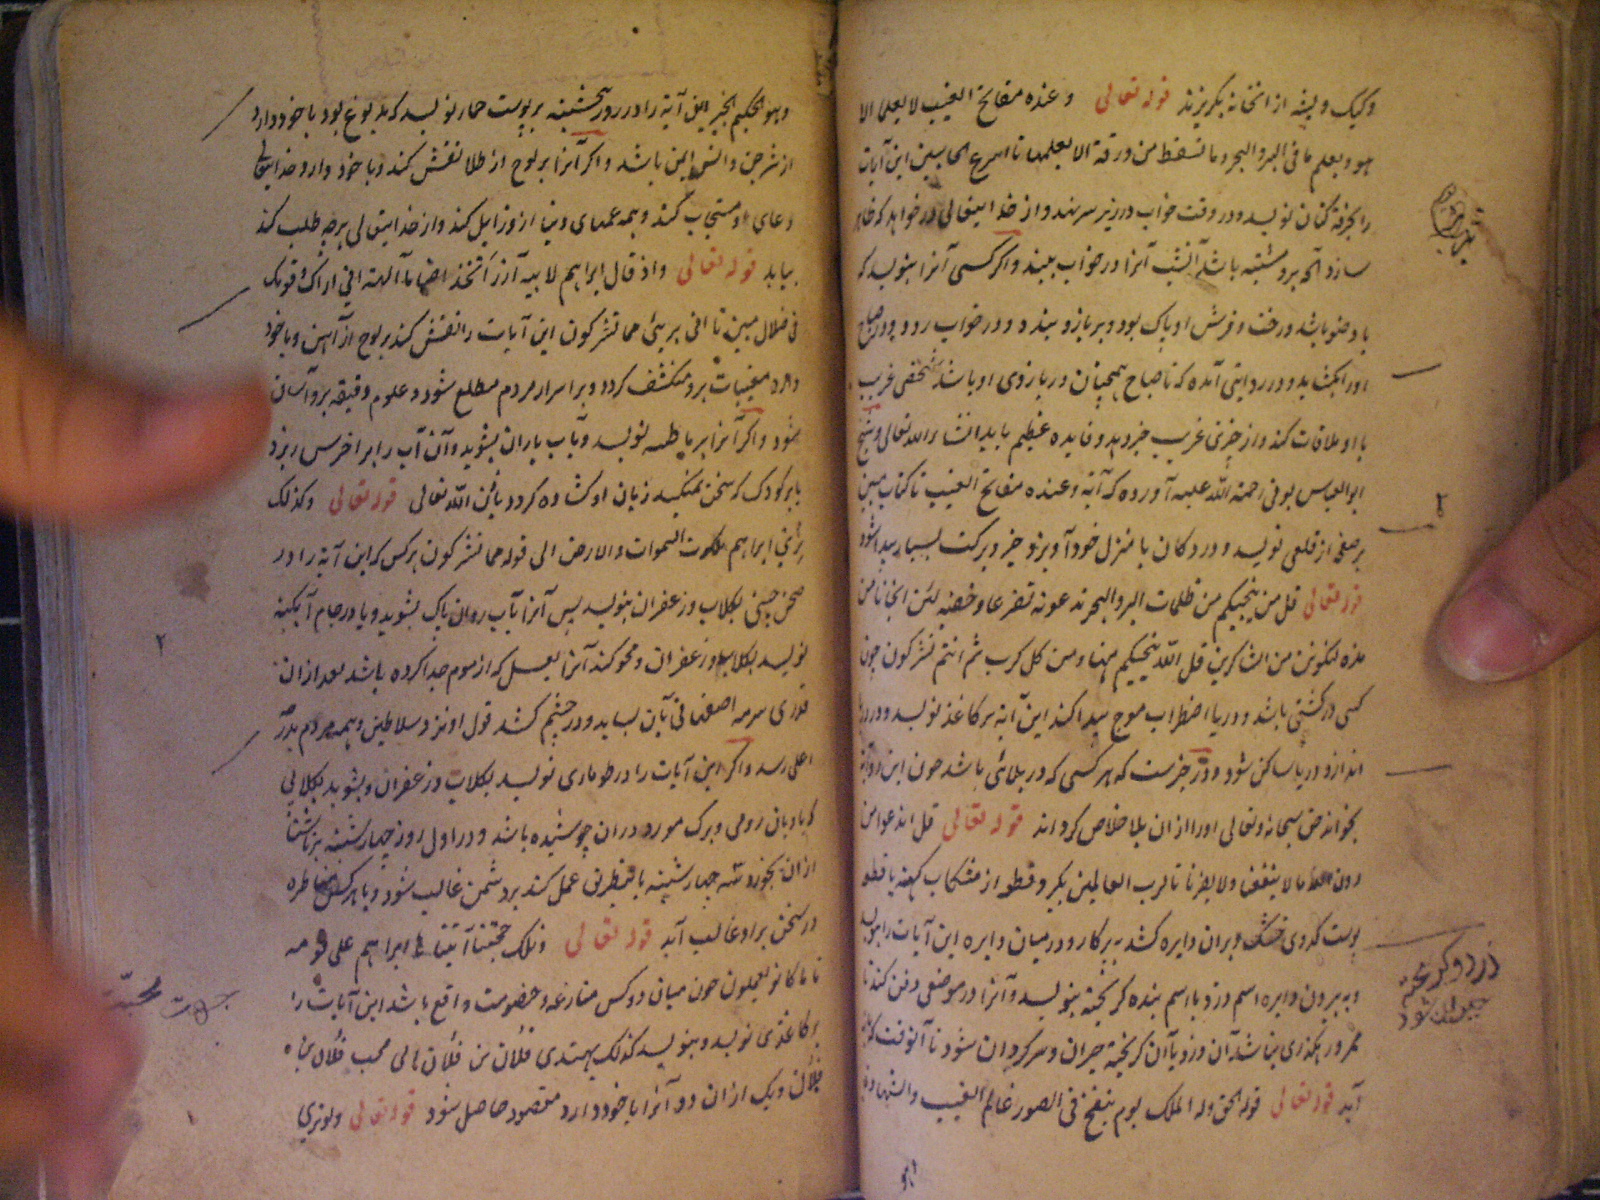 وکیک و پشه از انخانه بگریزند قوله تعالی وعنده مفاتح الغیب لا یعلمها الا
هو ویعلم ما فی البر والبحر وما تسقط من ورقة الا یعلمها تا اسرع الحاسبین این آیات
را بخرقه کتان نویسد و در وقت خواب در زیر سر نهد و از خدا یتعالی درخواهد که ظاهر
سازد آنچه برو مشتبه باشد آنشب آنرا در خواب ببیند واکر کسی آنرا بنویسد که
با وضو باشد و رخت و فرش او پاک بود و بر بازو بندد و در خواب رود و در صباح
او را بکشاید و در روایتی آمده که تا صباح همچنان در بازوی او باشد شخصی غریب
با او ملاقات کند و از چیزی غریب خبر دهد و فایده عظیم یابد انشاء الله تعالی و شیخ
ابو العباس بونی رحمة الله علیه آورده که آیة وعنده مفاتح الغیب تا کتاب مبین
بر صفحه از قلعی نویسد و در دکان یا منزل خود آویزد خیر و برکت بسیار پیدا شود
قوله تعالی قل من ینجیکم من ظلمات البر والبحر تدعونه تضرعا وخفیه لئن انجانا من
هذه لنکونن من الشاکرین قل الله ینجیکم منها ومن کل کرب ثم انتم تشرکون چون
کسی در کشتی باشد و دریا اضطراب موج پیدا کند این آیه بر کاغذ نویسد و در دریا
اندازد دریا ساکن شود و در خبرست که هر کسی که در بلائی باشد چون این دو آیه
بخواند حق سبحانه و تعالی او را از ان بلا خلاص کرداند قوله تعالی قل اندعوا من
دون الله ما لا ینفعنا ولا یضرنا تا لرب العالمین بکیرد قطعه از مشکاب کهنه یا قطعه
پوست کدوی خشک و بران دایره کشد به پرکار و در میان دایره این آیات را بنویسد
و به بیرون دایره اسم دزد یا اسم بنده کریخته بنویسد و آنرا در موضعی دفن کند تا
ممر و رهکذری نباشد آن دزد یا آن کریخته حیران و سرکردان شود تا آنوقت که باز
آید قوله تعالی قوله الحق وله الملک یوم ینفخ فی الصور عالم الغیب والشهادة
وهو
دزد و کریخته
حیران شود
وهو الحکیم الخبیر این آیة را در روز پنجشنبه بر پوست حمار نویسد که مدبوغ بود با خود دارد
از شر جن و انس ایمن باشد واکر آنرا بر لوح از طلا نقش کند و با خود دارد خدا یتعالی
دعای او مستجاب کند و همه غمهای دنیا ازو زایل کند و از خدا یتعالی هر چه طلب کند
بیابد قوله تعالی واذ قال ابراهیم لابیه آزر اتتخذ اصناماً آلهة انی اراک وقومک
فی ضلال مبین تا انی بریئ مما تشرکون این آیات را نقش کند بر لوح از آهن و با خود
دارد مغیبات برو منکشف کردد و بر اسرار مردم مطلع شود و علوم دقیقه برو آسان
شود واکر آنرا بر نویسد و بآب باران بشوید و آن آب را بر اخرس ریزد
یا بر کودک که سخن نمیکند زبان او کشاده کردد باذن الله تعالی قوله تعالی وکذلک
نری ابراهیم ملکوت السموات والارض الی قوله مما تشرکون هر کس که این آیة را در
صحن چینی بکلاب و زعفران بنویسد پس آنرا بآب روان پاک بشوید و یا در جام آبکینه
نویسد بکلاب و زعفران و محو کند آنرا بعسل که از موم جدا کرده باشد بعد از ان
قدری سرمه اصفهانی بآن بساید و در چشم کشد قول او نزد سلاطین و همه مردم بدرجه
اعلی رسد واکر این آیات را در طوماری نویسد بکلاب و زعفران و بشوید بکلابی
که بادیان رومی و برک مورد در ان جوشیده باشد و در اول روز چهارشنبه بر ناشتا
از ان بخورد سه چهارشنبه باینطریق عمل کند بر دشمن غالب شود و با هر کس مناظره
در سخن بر او غالب آید قوله تعالی وتلک حجتنا آتیناها ابراهیم علی قومه
تا ما کانوا یعملون چون میان دو کس منازعه و خصومت واقع باشد این آیات را
بر کاغذی نویسد و بنویسد کذلک یهتدی فلان بن فلان الی محب فلان بن
فلان و یک از ان دو آنرا با خود دارد مقصود حاصل شود قوله تعالی ولو تری
جهت محبت